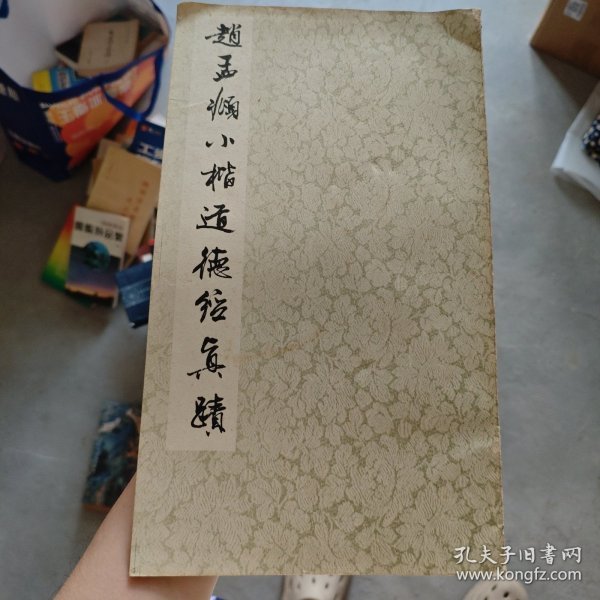 趙孟頫小楷道德經真蹟
孔夫子旧书网
www.kongfz.com